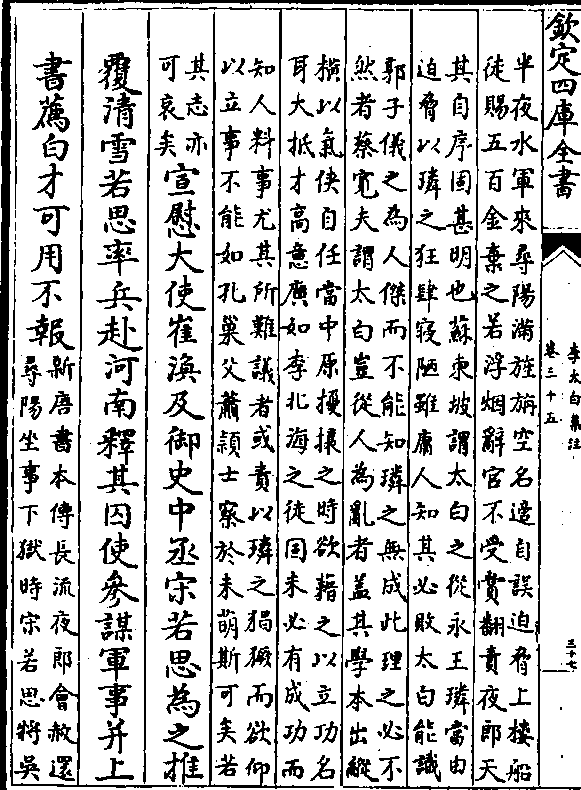 欽定四庫全書
李太白集注
卷三十五
三十七
半夜水軍來尋陽滿旌旃空名適自誤迫脅上樓船
徒賜五百金棄之若浮烟辭官不受賞翻責夜郎天
其自序固甚明也蘇東坡謂太白之從永王璘當由
迫脅以璘之狂肆寢陋雖庸人知其必敗太白能識
郭子儀之為人傑而不能知璘之無成此理之必不
然者蔡寬夫謂太白豈從人為亂者蓋其學本出縱
橫以氣俠自任當中原擾攘之時欲藉之以立功名
耳大抵才高意廣如李北海之徒固未必有成功而
知人料事尤其所難議者或責以璘之猖獗而欲仰
以立事不能如孔巢父蕭頴士察於未萌斯可矣若
其志亦
可哀矣
宣慰大使崔渙及御史中丞宋若思為之推
覆清雪若思率兵赴河南釋其囚使參謀軍事并上
書薦白才可用不報
新唐書本傳長流夜郎會赦還
尋陽坐事下獄時宋若思將吳